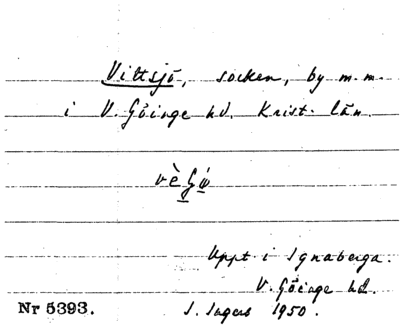 Vittsjö, socken, by m.m.
i V. Göinge hd. Krist. län.
Uppt i Ignaberga.
V. Göinge hd.
Nr 5393.
I. Ingers 1950.